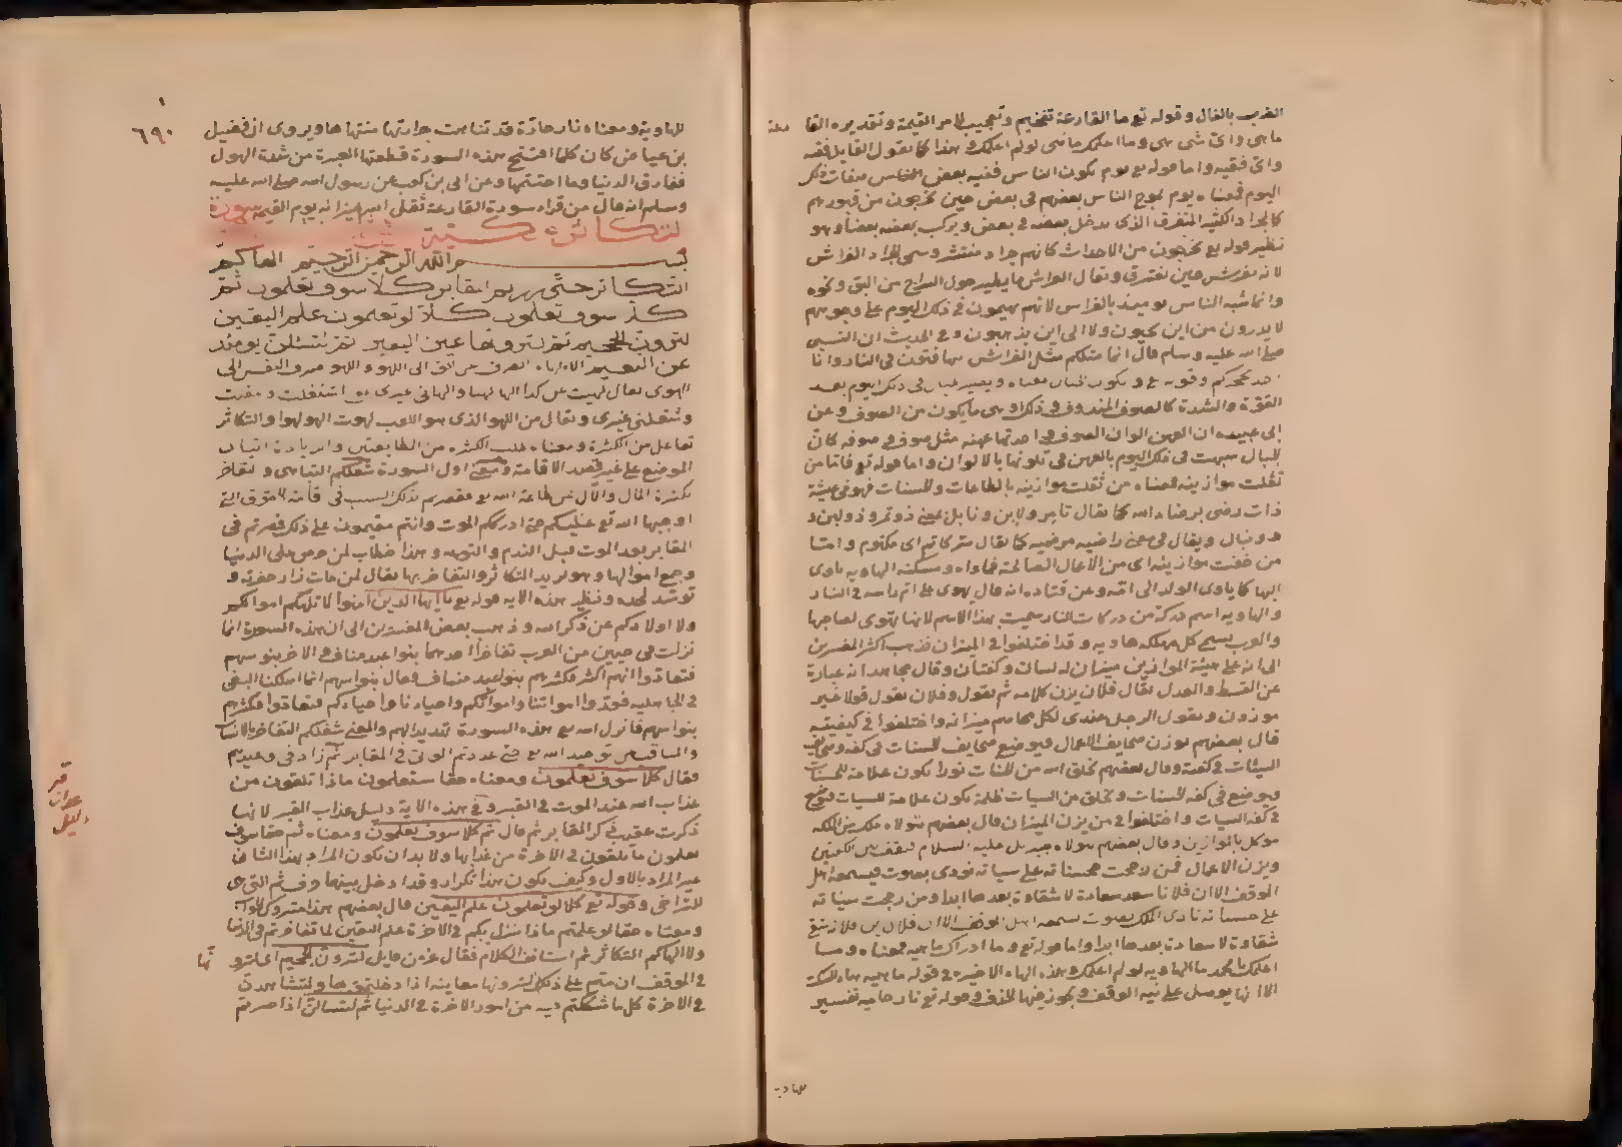 الضرب بالفال وقوله تع ما القارعة تفخيم وتعجيب لامر القيمة وتقديره القا
ما هي واي شي هي وما اعلمك ما هي لو لم اعلمك وهذا كما يقول القايل فقيه
واي فقيه واما قوله يع يوم يكون الناس ففيه بعض صفات ذلك
اليوم فمعناه يوم يموج الناس بعضهم في بعض حين يخرجون من قبورهم
كالجراد الكثير المتفرق الذي يدخل بعضه في بعض ويركب بعضه بعضا وهو
نظير قوله يع يخرجون من الاجداث كانهم جراد منتشر وسمى الجراد الفراش
لانه يفرش حين يفترق ويقال الفراش ما يطير حول السراج من البق ونحوه
وانما شبه الناس يومئذ بالفراش لانهم يهيمون في ذلك اليوم على وجوههم
لا يدرون من اين يجيون ولا الى اين يذهبون وفي الحديث ان النبي
صلى الله عليه وسلم قال انما مثلكم مثل الفراش يتهافتون في النار وانا
اخذ بحجزكم وقوله يع وتكون الجبال معناه ويصير الجبال في ذلك اليوم بعد
القوة والشدة كالصوف المندوف وذلك اوهى ما يكون من الصوف وعن
ابي عبيدة ان العهن الوان الصوف واحدتها عهنة مثل صوف وصوفة كان
الجبال شبهت في ذلك اليوم بالعهن في تلونها بالالوان واما قوله تع فاما من
ثقلت موازينه فمعناه من ثقلت موازينه بالطاعات والحسنات فهو في عيشة
ذات رضى يرضاه الله كما يقال تامر ولابن ونابل بمعنى ذو تمر وذو لبن و
ذو نبال ويقال في معنى راضيه مرضيه كما يقال سر كاتم اي مكتوم واما
من خفت موازينه اي من الاعمال الصالحة فماواه ومسكنه الهاويه ياوي
اليها كما ياوي الولد الى امه وعن قتادة انه قال يهوي على ام راسه في النار
والهاويه اسم دركة من دركات النار سميت بهذا الاسم لانها تهوي لصاحبها
والعرب يسمي كل مهلكه هاويه وقد اختلفوا في الميزان فذهب اكثر المفسرين
الى انه على هيئة الموازين ميزان له لسان وكفتان وقال مجاهد انه عبارة
عن القسط والعدل يقال فلان يزن كلامه ثم يقول وفلان يقول قولا غير
موزون ويقول الرجل عندي لكل مخاصم ميزانه واختلفوا في كيفيته
قال بعضهم يوزن صحايف الاعمال فيوضع صحايف الحسنات في كفه وصحايف
السيئات في كفة وقال بعضهم يخلق الله من الحسنات نورا يكون علامة للحسنات
فيوضع في كفه الحسنات ويخلق من السيات ظلمة يكون علامة للسيات فيوضع
في كفه السيات واختلفوا في من يزن الميزان قال بعضهم يتولاه ملك من الملئكه
موكل بالموازين وقال بعضهم يتولاه جبريل عليه السلام فيقف بين الكفتين
ويزن الاعمال فمن رجحت حسناته على سياته نودي بصوت يسمعه اهل
الموقف الا ان فلانا سعد سعادة لا شقاوة بعدها ابدا ومن رجحت سيئاته
على حسناته نادى الملك بصوت يسمعه اهل الموقف الا ان فلان بن فلان شقي
شقاوة لا سعادة بعدها ابدا واما قوله تع وما ادراك ماهيه فمعناه وما
اعلمك يا محمد ما الهاويه لو لم اعلمك وهذه الهاء الاخيرة في قوله ما هيه هاء السكت
الا انها يوصل على نية الوقف ويجوز فيها الحذف وقوله تع نار حاميه تفسير
للهاوية
٦٩٠
للهاوية ومعناه نار حارة قد تناهت حرارتها منتهاها ويروى ان فضيل
بن عياض كان كلما افتتح هذه السورة قطعتها العبرة من شدة الهول
ففارق الدنيا وما اختتمها وعن ابي بن كعب عن رسول الله صلى الله عليه
وسلم انه قال من قراء سورة القارعة ثقل الله ميزانه يوم القيمة سورة
التكاثر مكية
بسم الله الرحمن الرحيم الهاكم
التكاثر حتى زرتم المقابر كلا سوف تعلمون ثم
كلا سوف تعلمون كلا لو تعلمون علم اليقين
لترون الجحيم ثم لترونها عين اليقين ثم لتسئلن يومئذ
عن النعيم الالهاء الصرف الى اللهو واللهو صرف النفس الى
الهوى يقال لهيت عن كذا الها لهيا والهاني غيري اي اشتغلت وصرفت
وشغلني غيري ويقال من اللهو الذي هو اللعب لهوت الهو لهوا والتكاثر
تفاعل من الكثرة ومعناه طلب الكثره من الطايفتين والزيارة اتيان
الموضع على غير قصد الاقامة ومعنى اول السورة شغلكم التباهي والتفاخر
بكثرة المال والآل عن طاعة الله يع فقصرتم بذلك السبب في قامة الحقوق التي
اوجبها الله تع عليكم حتى ادرككم الموت وانتم مقيمون على ذلك فصرتم في
المقابر بعد الموت قبل الندم والتوبه وهذا خطاب لمن حرص على الدنيا
وجمع اموالها وهو يريد التكاثر والتفاخر بها يقال لمن مات زار حفرته و
توسد لحده ونظير هذه الايه قوله يع يا ايها الذين امنوا لا تلهكم اموالكم
ولا اولادكم عن ذكر الله وذهب بعض المفسرين الى ان هذه السورة انما
نزلت في حيين من العرب تفاخرا احدهما بنو عبد مناف والاخر بنو سهم
فتعادوا ايهم اكثر فكثرهم بنو عبد مناف فقال بنو سهم انما اهلكنا البغي
في الجاهليه فعدوا امواتنا وامواتكم واحياءنا واحياءكم فتعادوا فكثرهم
بنو سهم فانزل الله يع هذه السورة تهديدا لهم والمعنى شغلكم التفاخر بالانساب
والمناقب عن توحيد الله يع حتى عددتم الموتى في المقابر ثم زاد في وعيدهم
فقال كلا سوف تعلمون ومعناه حقا ستعلمون ماذا تلقون من
عذاب الله عند الموت في القبر وفي هذه الاية دليل عذاب القبر لانها
ذكرت عقيب ذكر المقابر ثم قال ثم كلا سوف تعلمون ومعناه ثم حقا سوف
تعلمون ما تلقون في الاخرة من عذابها ولا بد ان تكون المراد بهذا الثاني
غير المراد بالاول وكيف يكون هذا تكرار وقد ادخل بينهما حرف ثم التي هي
للتراخي وقوله تع كلا لو تعلمون علم اليقين قال بعضهم هذا متروك الجواب
ومعناه حقا لو علمتم ماذا ينزل بكم في الاخرة علم اليقين لما تفاخرتم في الدنيا
ولا الهاكم التكاثر ثم استانف الكلام فقال عز من قايل لترون الجحيم اي لترونها
في الموقف ان متم على ذلك لترونها معاينة اذا دخلتموها ولتشاهدن
في الاخرة كل ما شككتم فيه من امور الاخرة في الدنيا ثم لتسالن اذا صرتم
قبر
عذاب
دليل